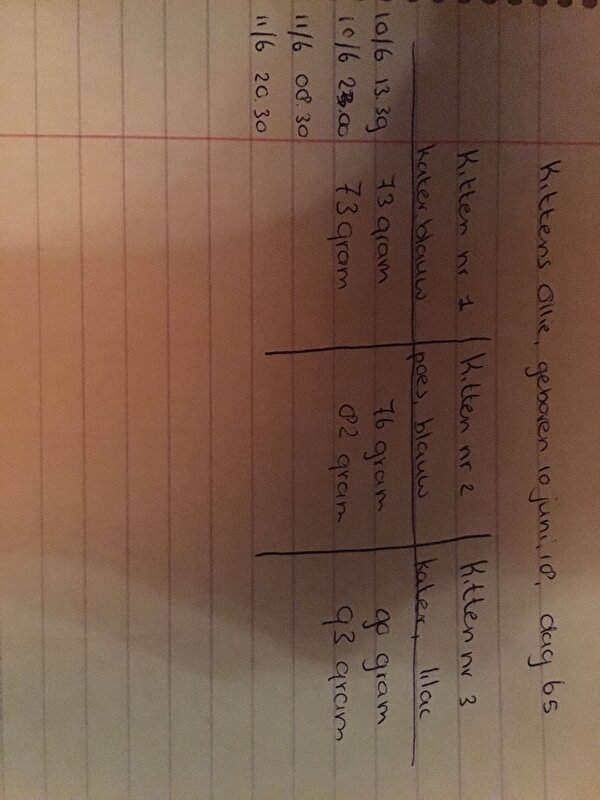 Kittens Ollie, geboren 10 juni, 18, dag 65
Kitten nr 1 Kitten nr 2 Kitten nr 3
kater, blauw poes, blauw kater, lilac
10/6 13.39 73 gram 76 gram 90 gram
10/6 23.00 73 gram 82 gram 93 gram
11/6 08.30
11/6 20.30